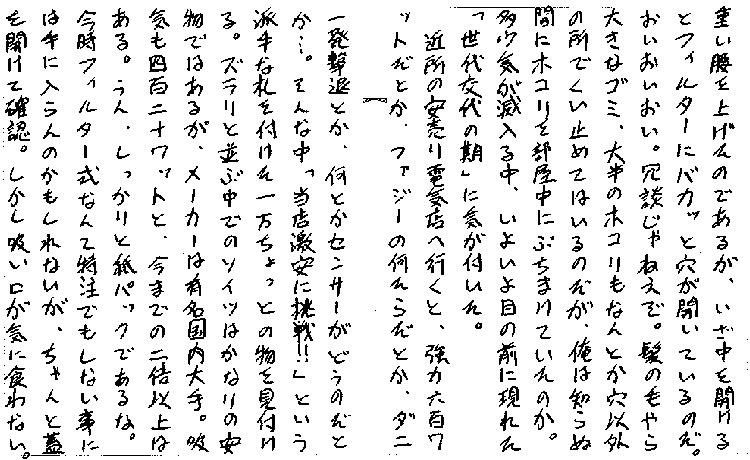 重い腰を上げたのであるが、いざ中を開ける
とフィルターにバカッと穴が開いているのだ。
おいおいおい。冗談じゃねえぞ。髪の毛やら
大きなゴミ、大半のホコリもなんとか穴以外
の所でくい止めてはいるのだが、俺は知らぬ
間にホコリを部屋中にぶちまけていたのか。
多少気が滅入る中、いよいよ目の前に現れた
「世代交代の期」に気が付いた。
近所の安売り電気店へ行くと、強力六百ワ
ットだとか、ファジーの何たらだとか、ダニ
一発撃退とか、何とかセンサーがどうのだと
か…。そんな中「当店激安に挑戦!!」という
派手な札を付けた一万ちょっとの物を見付け
る。ズラリと並ぶ中でのソイツはかなりの安
物ではあるが、メーカーは有名国内大手。吸
気も四百二十ワットと、今までの二倍以上は
ある。うん、しっかりと紙パックであるな。
今時フィルター式なんて特注でもしない事に
は手に入らんのかもしれないが、ちゃんと蓋
を開けて確認。しかし吸い口が気に食わない。